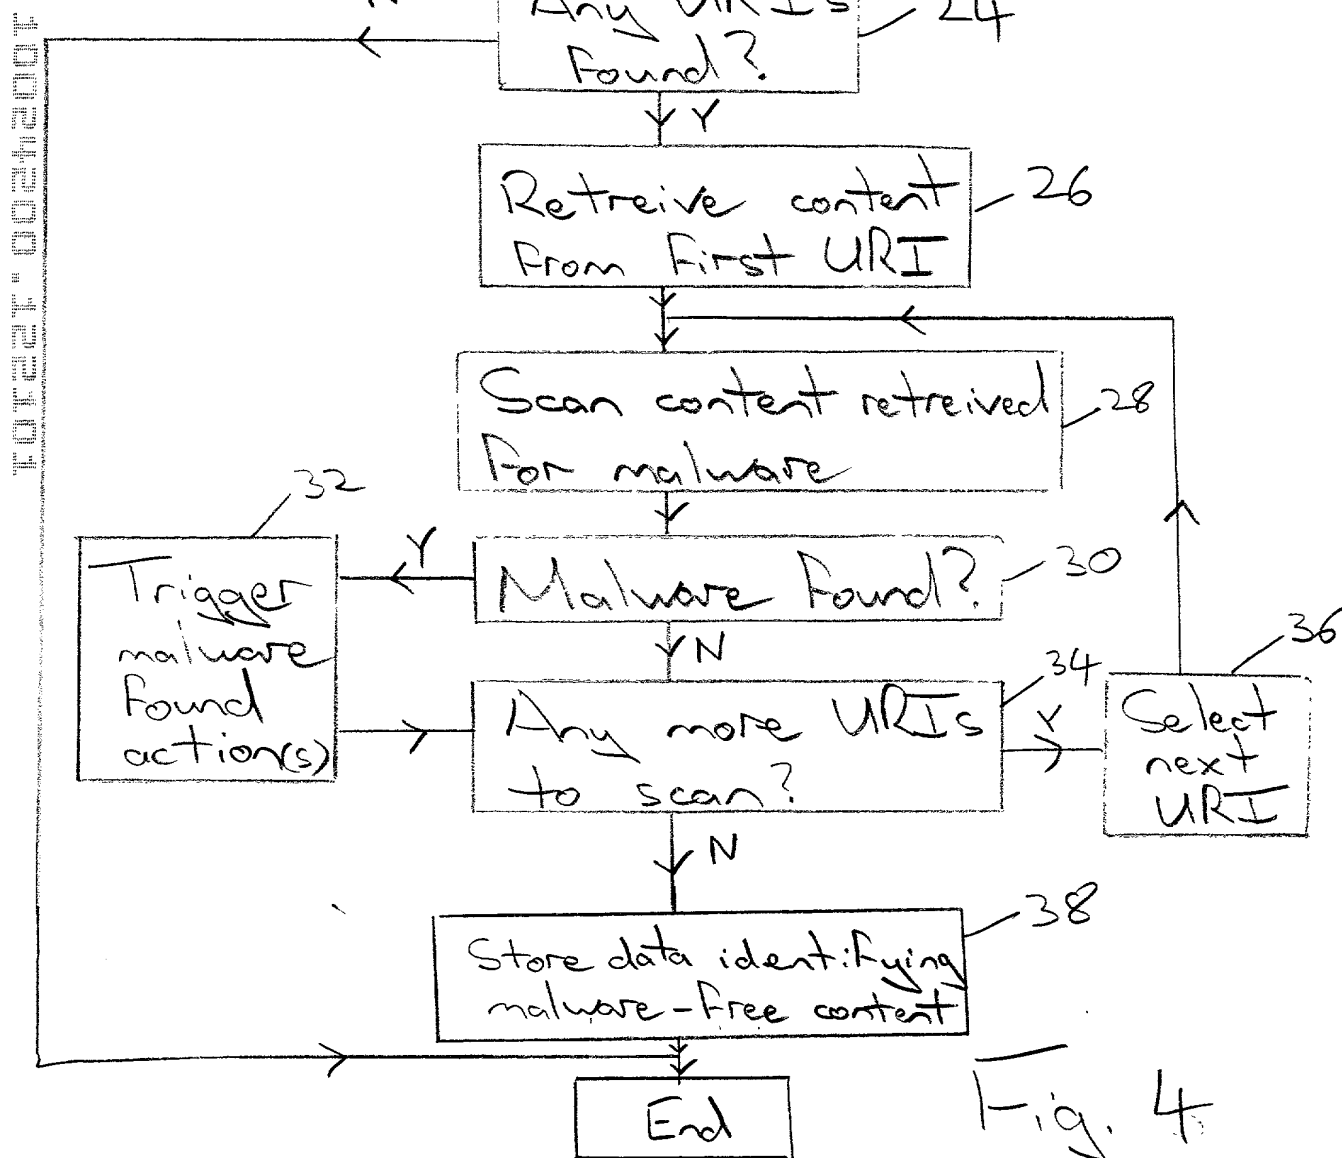 Any URIs
24
found?
Y
Retreive content
from first URI
26
Scan content retreived
for malware
28
32
Y
Malware found?
30
Trigger
malware
found
action(s)
N
36
34
Any more URIs
to scan?
Y
Select
next
URI
N
38
Store data identifying
malware-free content
End
Fig. 4